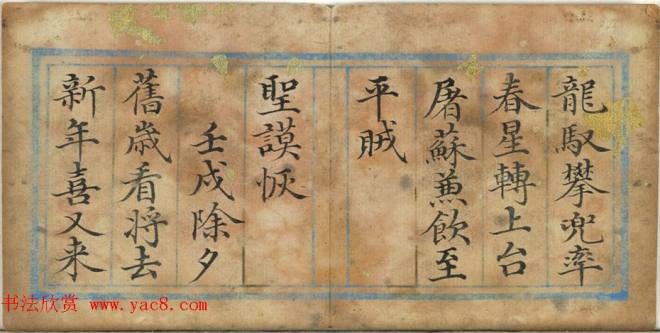 龍馭攀兜率
春星轉上台
屠蘇兼飲至
平賊
聖謨恢
壬戌除夕
舊歲看將去
新年喜又来
书法欣赏 www.yac8.com